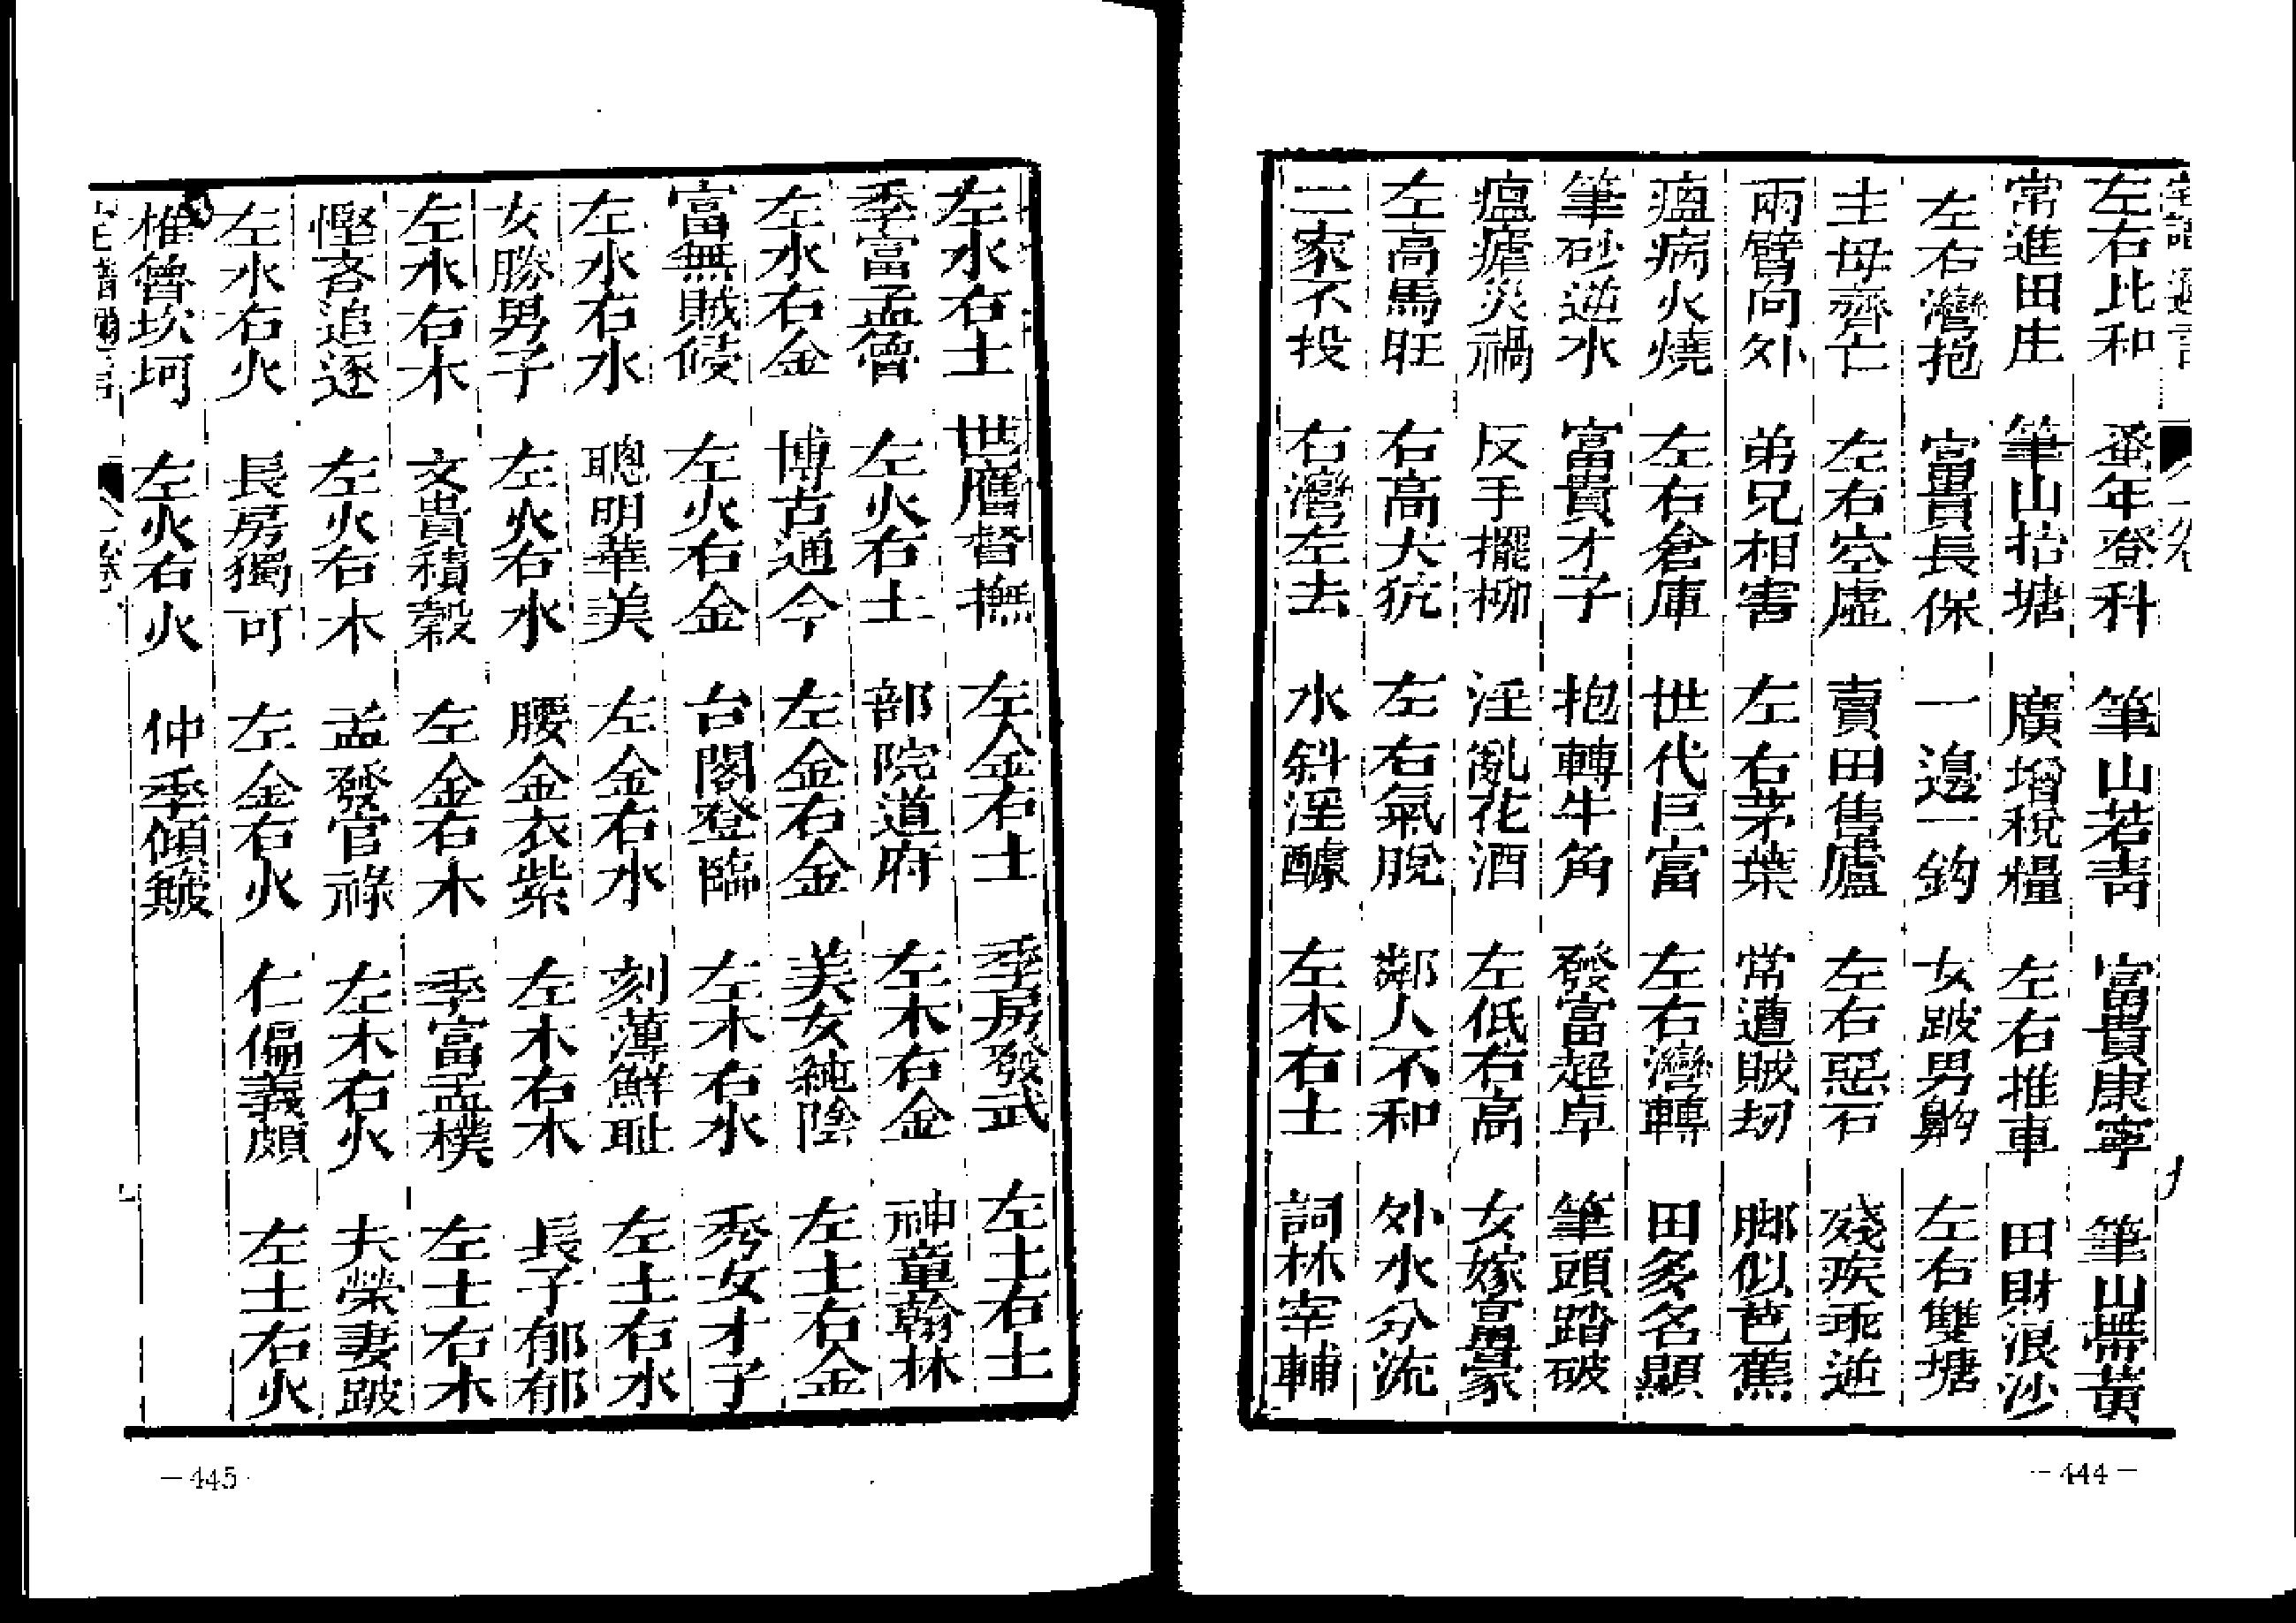 左右比和 蚤年登科 筆山若靑 富貴康寧 筆山帶黃
常進田庄 筆山抬塘 廣增稅糧 左右推車 田財浪沙
左右灣抱 富貴長保 一邊一鈎 女跛男齁 左右雙塘
主母齊亡 左右空虛 賣田售廬 左右惡石 殘疾乖逆
兩臂向外 弟兄相害 左右茅葉 常遭賊刼 脚似芭蕉
瘟病火燒 左右倉庫 世代巨富 左右灣轉 田多名顯
筆砂逆水 富貴才子 抱轉牛角 發富超卓 筆頭踏破
瘟瘧災禍 反手擺柳 淫亂花酒 左低右高 女嫁富豪
左高馬旺 右高犬狁 左右氣脫 鄰人不和 外水分流
二家不投 右灣左去 水斜淫醵 左木右土 詞林宰輔
－444－
左水右土 世膺督撫 左金右土 季房發武 左土右土
季富孟儈 左火右土 部院道府 左木右金 神童翰林
左水右金 博古通今 左金右金 美女純陰 左土右金
富無賊侵 左火右金 台閣登臨 左木右水 秀女才子
左水右水 聰明華美 左金右水 刻薄鮮耻 左土右水
女勝男子 左火右水 腰金衣紫 左木右木 長子郁郁
左水右木 文貴積穀 左金右木 季富孟樸 左土右木
慳吝追逐 左火右木 孟發官祿 左木右火 夫榮妻跛
左水右火 長房獨可 左金右火 仁偏義頗 左土右火
椎魯坎坷 左火右火 仲季傾皺
－445